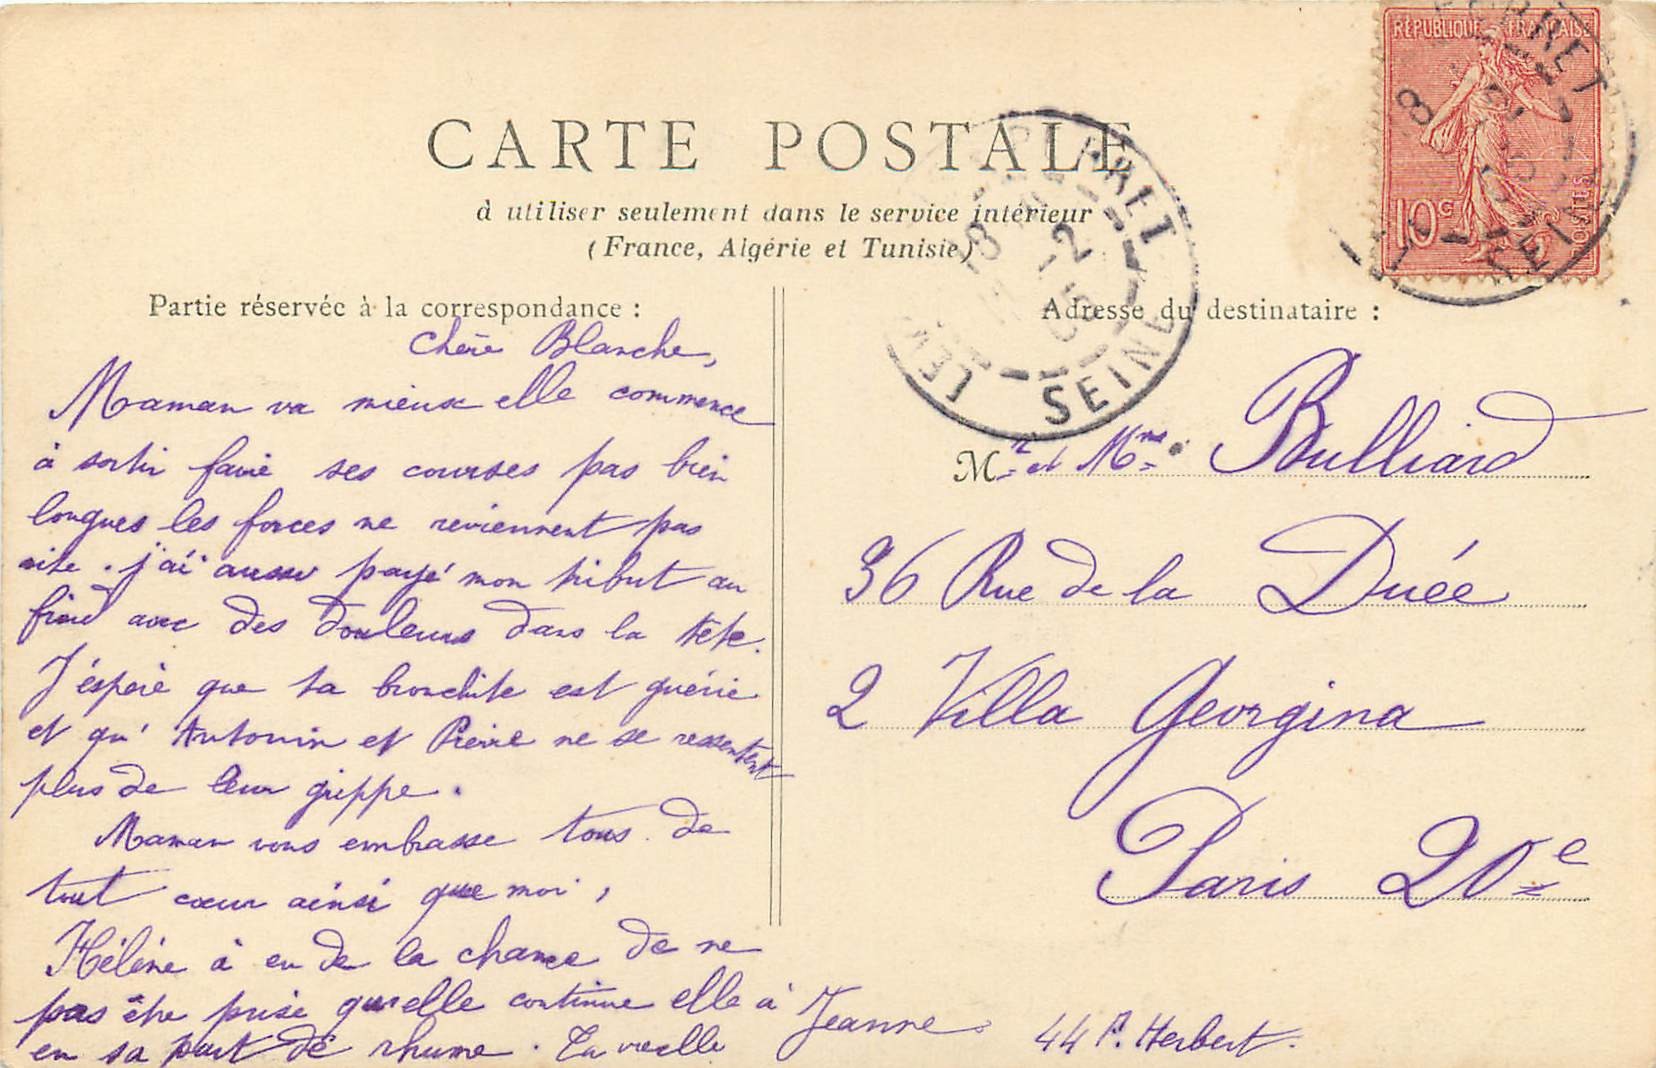 RÉPUBLIQUE FRANÇAISE
10c
POSTES
CARTE POSTALE
à utiliser seulement dans le service intérieur
(France, Algérie et Tunisie)
LEV PERRET
SEINE
Partie réservée à la correspondance :
Chère Blanche,
Maman va mieux elle commence
à sortir faire ses courses pas bien
longues les forces ne reviennent pas
vite. j'ai aussi payé mon tribut au
froid avec des douleurs dans la tête.
J'éspère que ta bronchite est guérie
et qu' Antonin et Pierre ne se ressentent
plus de leur grippe.
Maman vous embrasse tous de
tout cœur ainsi que moi,
Hélène à eu de la chance de ne
pas être prise qu'elle continue elle à
en sa part de rhume. Ta vieille
Jeanne
44 P. Herbert.
Adresse du destinataire :
Mr et Mme Bulliard
36 Rue de la Duée
2 Villa Georgina
Paris 20e